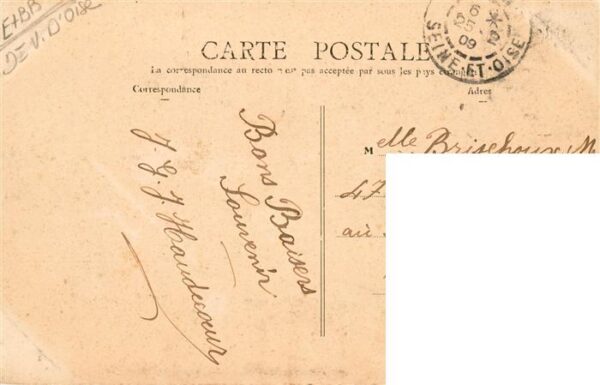 CARTE POSTALE
La correspondance au recto n'est pas acceptée par tous les pays étrangers
Correspondance
Adres
SEINE-ET-OISE
09
Bons Baisers
Souvenir
J. G. J. Haudecoeur
Melle Brisehoux M
47
au